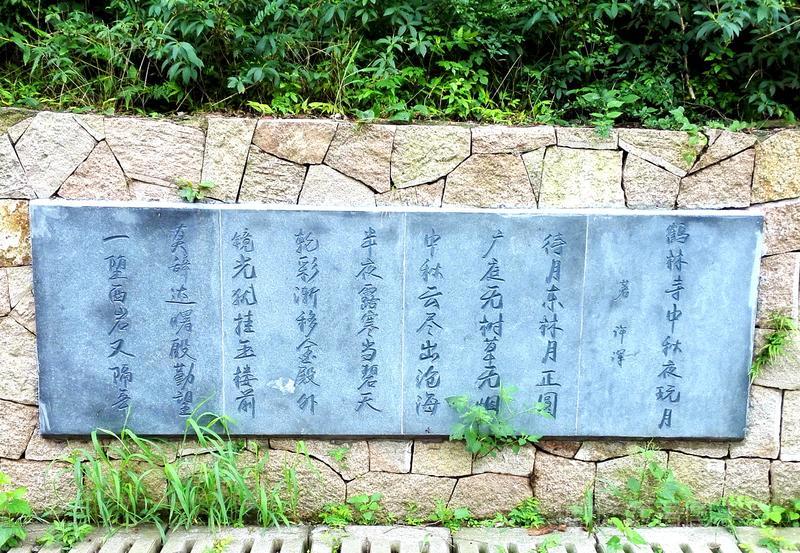 鹤林寺中秋夜玩月
著 许浑
待月东林月正圆
广庭无树草无烟
中秋云尽出沧海
半夜露寒当碧天
轮彩渐移金殿外
镜光犹挂玉楼前
莫辞达曙殷勤望
一堕西岩又隔年